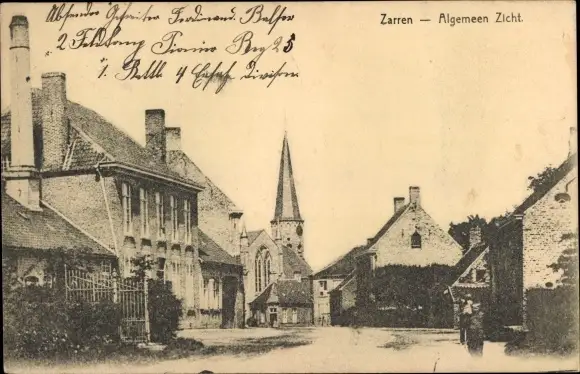 Absender Gefreiter Ferdinand. Balser
2 Feldkomp Pionier Reg 25
1. Battl 4 Ersatz Division
Zarren — Algemeen Zicht.